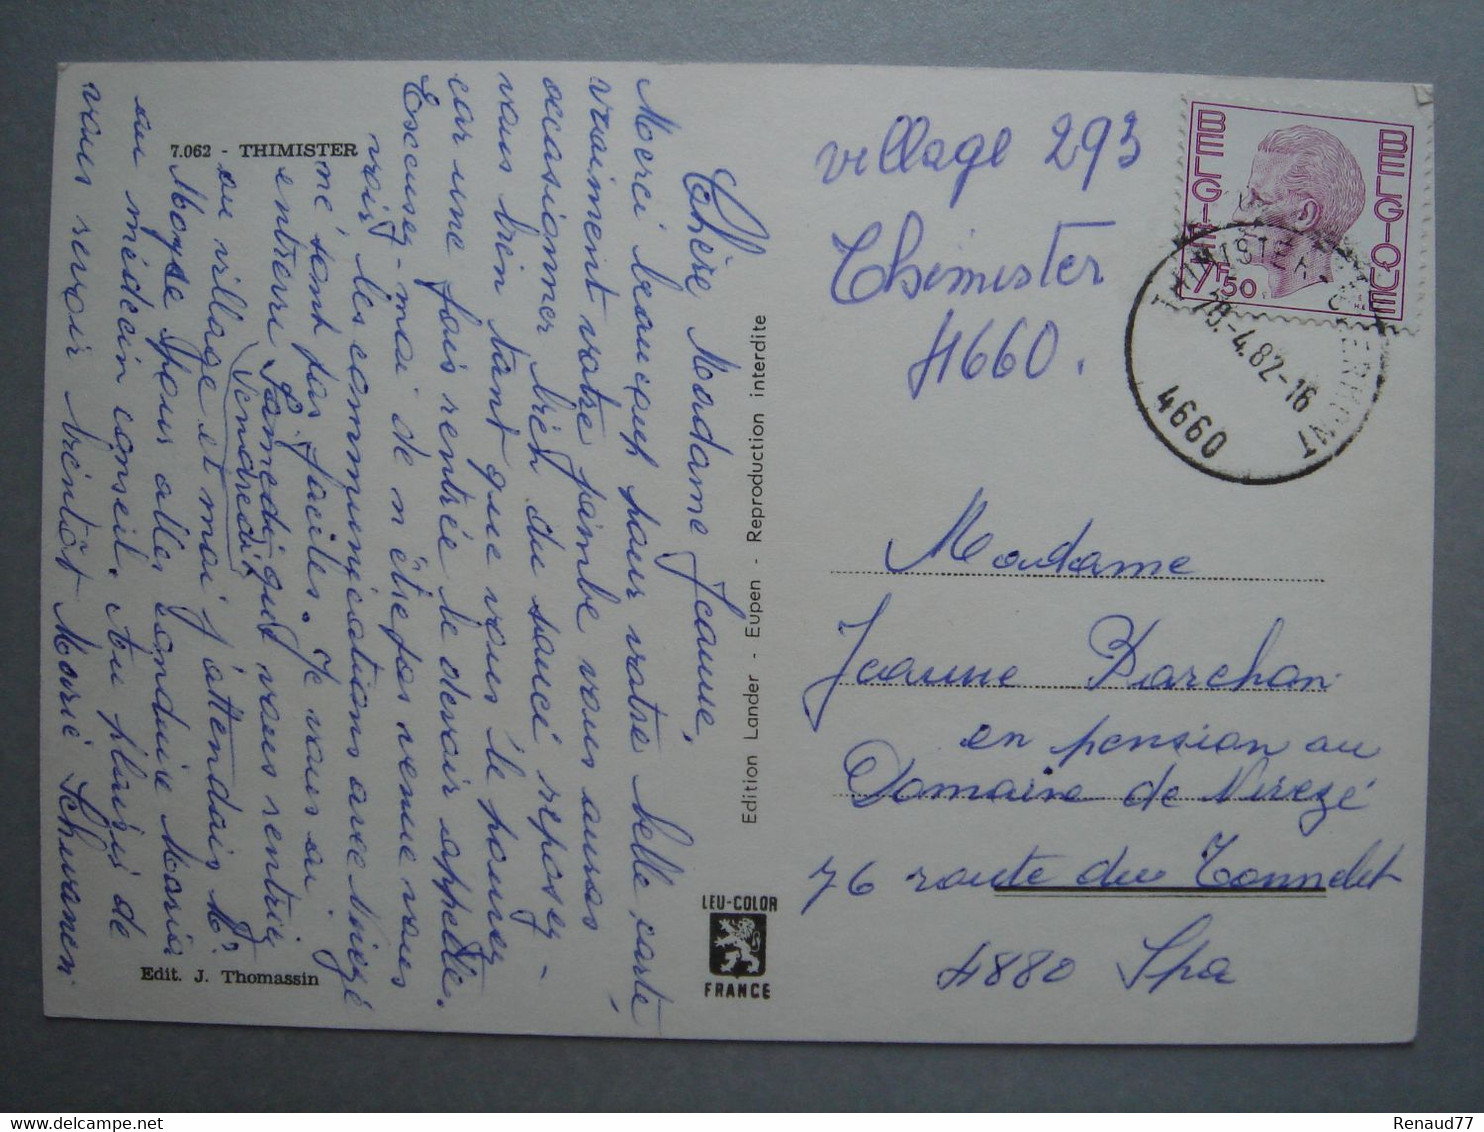 7.062 - THIMISTER
Chère Madame Jeanne,
Merci beaucoup pour votre belle carte,
vraiment votre jambe vous aura
occasionner bien du souci reposez-
vous bien tant que vous le pouvez
car une fois rentrée le devoir appelle.
Excusez-moi de n'être pas venue vous
voir, les communications avec Nivezé
me sont pas faciles. Je vous ai
entrevu Samedi, vous rentriez
Vendredi
au village et moi j'attendais Mr
Moyse pour aller conduire Maria
au médecin conseil. Au plaisir de
vous revoir bientôt Marie Schunamen
Edit. J. Thomassin
Edition Lander - Eupen - Reproduction interdite
LEU-COLOR
FRANCE
village 293
Thimister
4660.
BELGIE
BELGIQUE
7F50
THIMISTER-CLERMONT
-4.82-16
4660
Madame
Jeanne Darchan
en pension au
Domaine de Nivezé
76 route du Tonnelet
4880 Spa
Renaud77